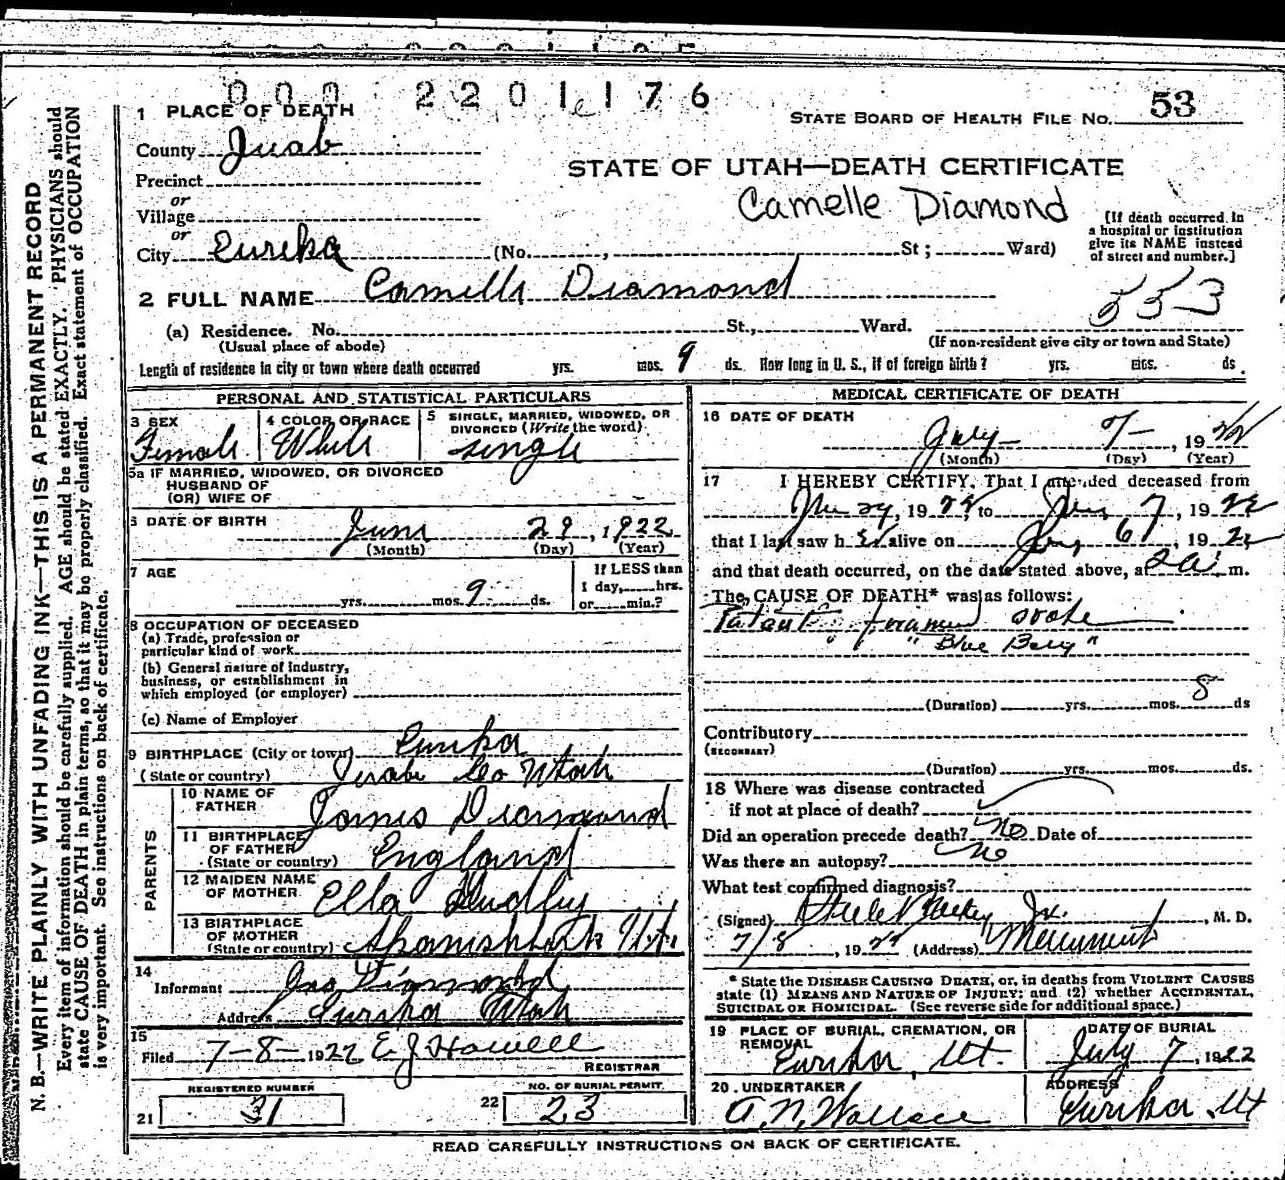 000 2201176
1 PLACE OF DEATH
STATE BOARD OF HEALTH FILE NO. 53
County Juab
STATE OF UTAH—DEATH CERTIFICATE
Precinct
or
Camelle Diamond
Village
or
[If death occurred in a hospital or institution give its NAME instead of street and number.]
City Eureka (No. , St; Ward)
2 FULL NAME Camille Diamond
553
(a) Residence. No. St., Ward.
(Usual place of abode) (If non-resident give city or town and State)
Length of residence in city or town where death occurred yrs. mos. 9 ds. How long in U. S., if of foreign birth? yrs. mos. ds.
PERSONAL AND STATISTICAL PARTICULARS
3 SEX Female
4 COLOR OR RACE White
5 SINGLE, MARRIED, WIDOWED, OR DIVORCED (Write the word) single
5a IF MARRIED, WIDOWED, OR DIVORCED
HUSBAND OF
(OR) WIFE OF
6 DATE OF BIRTH June 29, 1922
(Month) (Day) (Year)
7 AGE yrs. mos. 9 ds.
If LESS than
1 day, hrs.
or min.?
8 OCCUPATION OF DECEASED
(a) Trade, profession or
particular kind of work
(b) General nature of industry,
business, or establishment in
which employed (or employer)
(c) Name of Employer
9 BIRTHPLACE (City or town) Eureka
(State or country) Juab Co Utah
PARENTS
10 NAME OF FATHER James Diamond
11 BIRTHPLACE OF FATHER (State or country) England
12 MAIDEN NAME OF MOTHER Ella Hudley
13 BIRTHPLACE OF MOTHER (State or country) Spanish Fork Ut
14
Informant Jas Diamond
Address Eureka Utah
15
Filed 7-8-1922 E J Howell
REGISTRAR
REGISTERED NUMBER
21 31
NO. OF BURIAL PERMIT
22 23
MEDICAL CERTIFICATE OF DEATH
16 DATE OF DEATH
July 7, 1922
(Month) (Day) (Year)
17 I HEREBY CERTIFY, That I attended deceased from
29, 1922, to 7, 1922
that I last saw her alive on 6, 192
and that death occurred, on the date stated above, at 2a m.
The CAUSE OF DEATH* was as follows:
Patent foramen ovale
" " Blue Baby "
(Duration) yrs. mos. 8 ds
Contributory
(SECONDARY)
(Duration) yrs. mos. ds.
18 Where was disease contracted
if not at place of death?
Did an operation precede death? No Date of
Was there an autopsy? No
What test confirmed diagnosis?
(Signed) Steele Bailey Jr., M. D.
7/8, 1922 (Address)
* State the DISEASE CAUSING DEATH, or, in deaths from VIOLENT CAUSES
state (1) MEANS AND NATURE OF INJURY; and (2) whether ACCIDENTAL,
SUICIDAL OR HOMICIDAL. (See reverse side for additional space.)
19 PLACE OF BURIAL, CREMATION, OR REMOVAL Eureka, Ut.
DATE OF BURIAL July 7, 1922
20 UNDERTAKER A. N. Wallace
ADDRESS Eureka Ut
READ CAREFULLY INSTRUCTIONS ON BACK OF CERTIFICATE.
N. B.—WRITE PLAINLY WITH UNFADING INK—THIS IS A PERMANENT RECORD
Every item of information should be carefully supplied. AGE should be stated EXACTLY. PHYSICIANS should
state CAUSE OF DEATH in plain terms, so that it may be properly classified. Exact statement of OCCUPATION
is very important. See instructions on back of certificate.